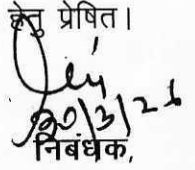 हेतु प्रेषित।
30/3/26
निबंधक,